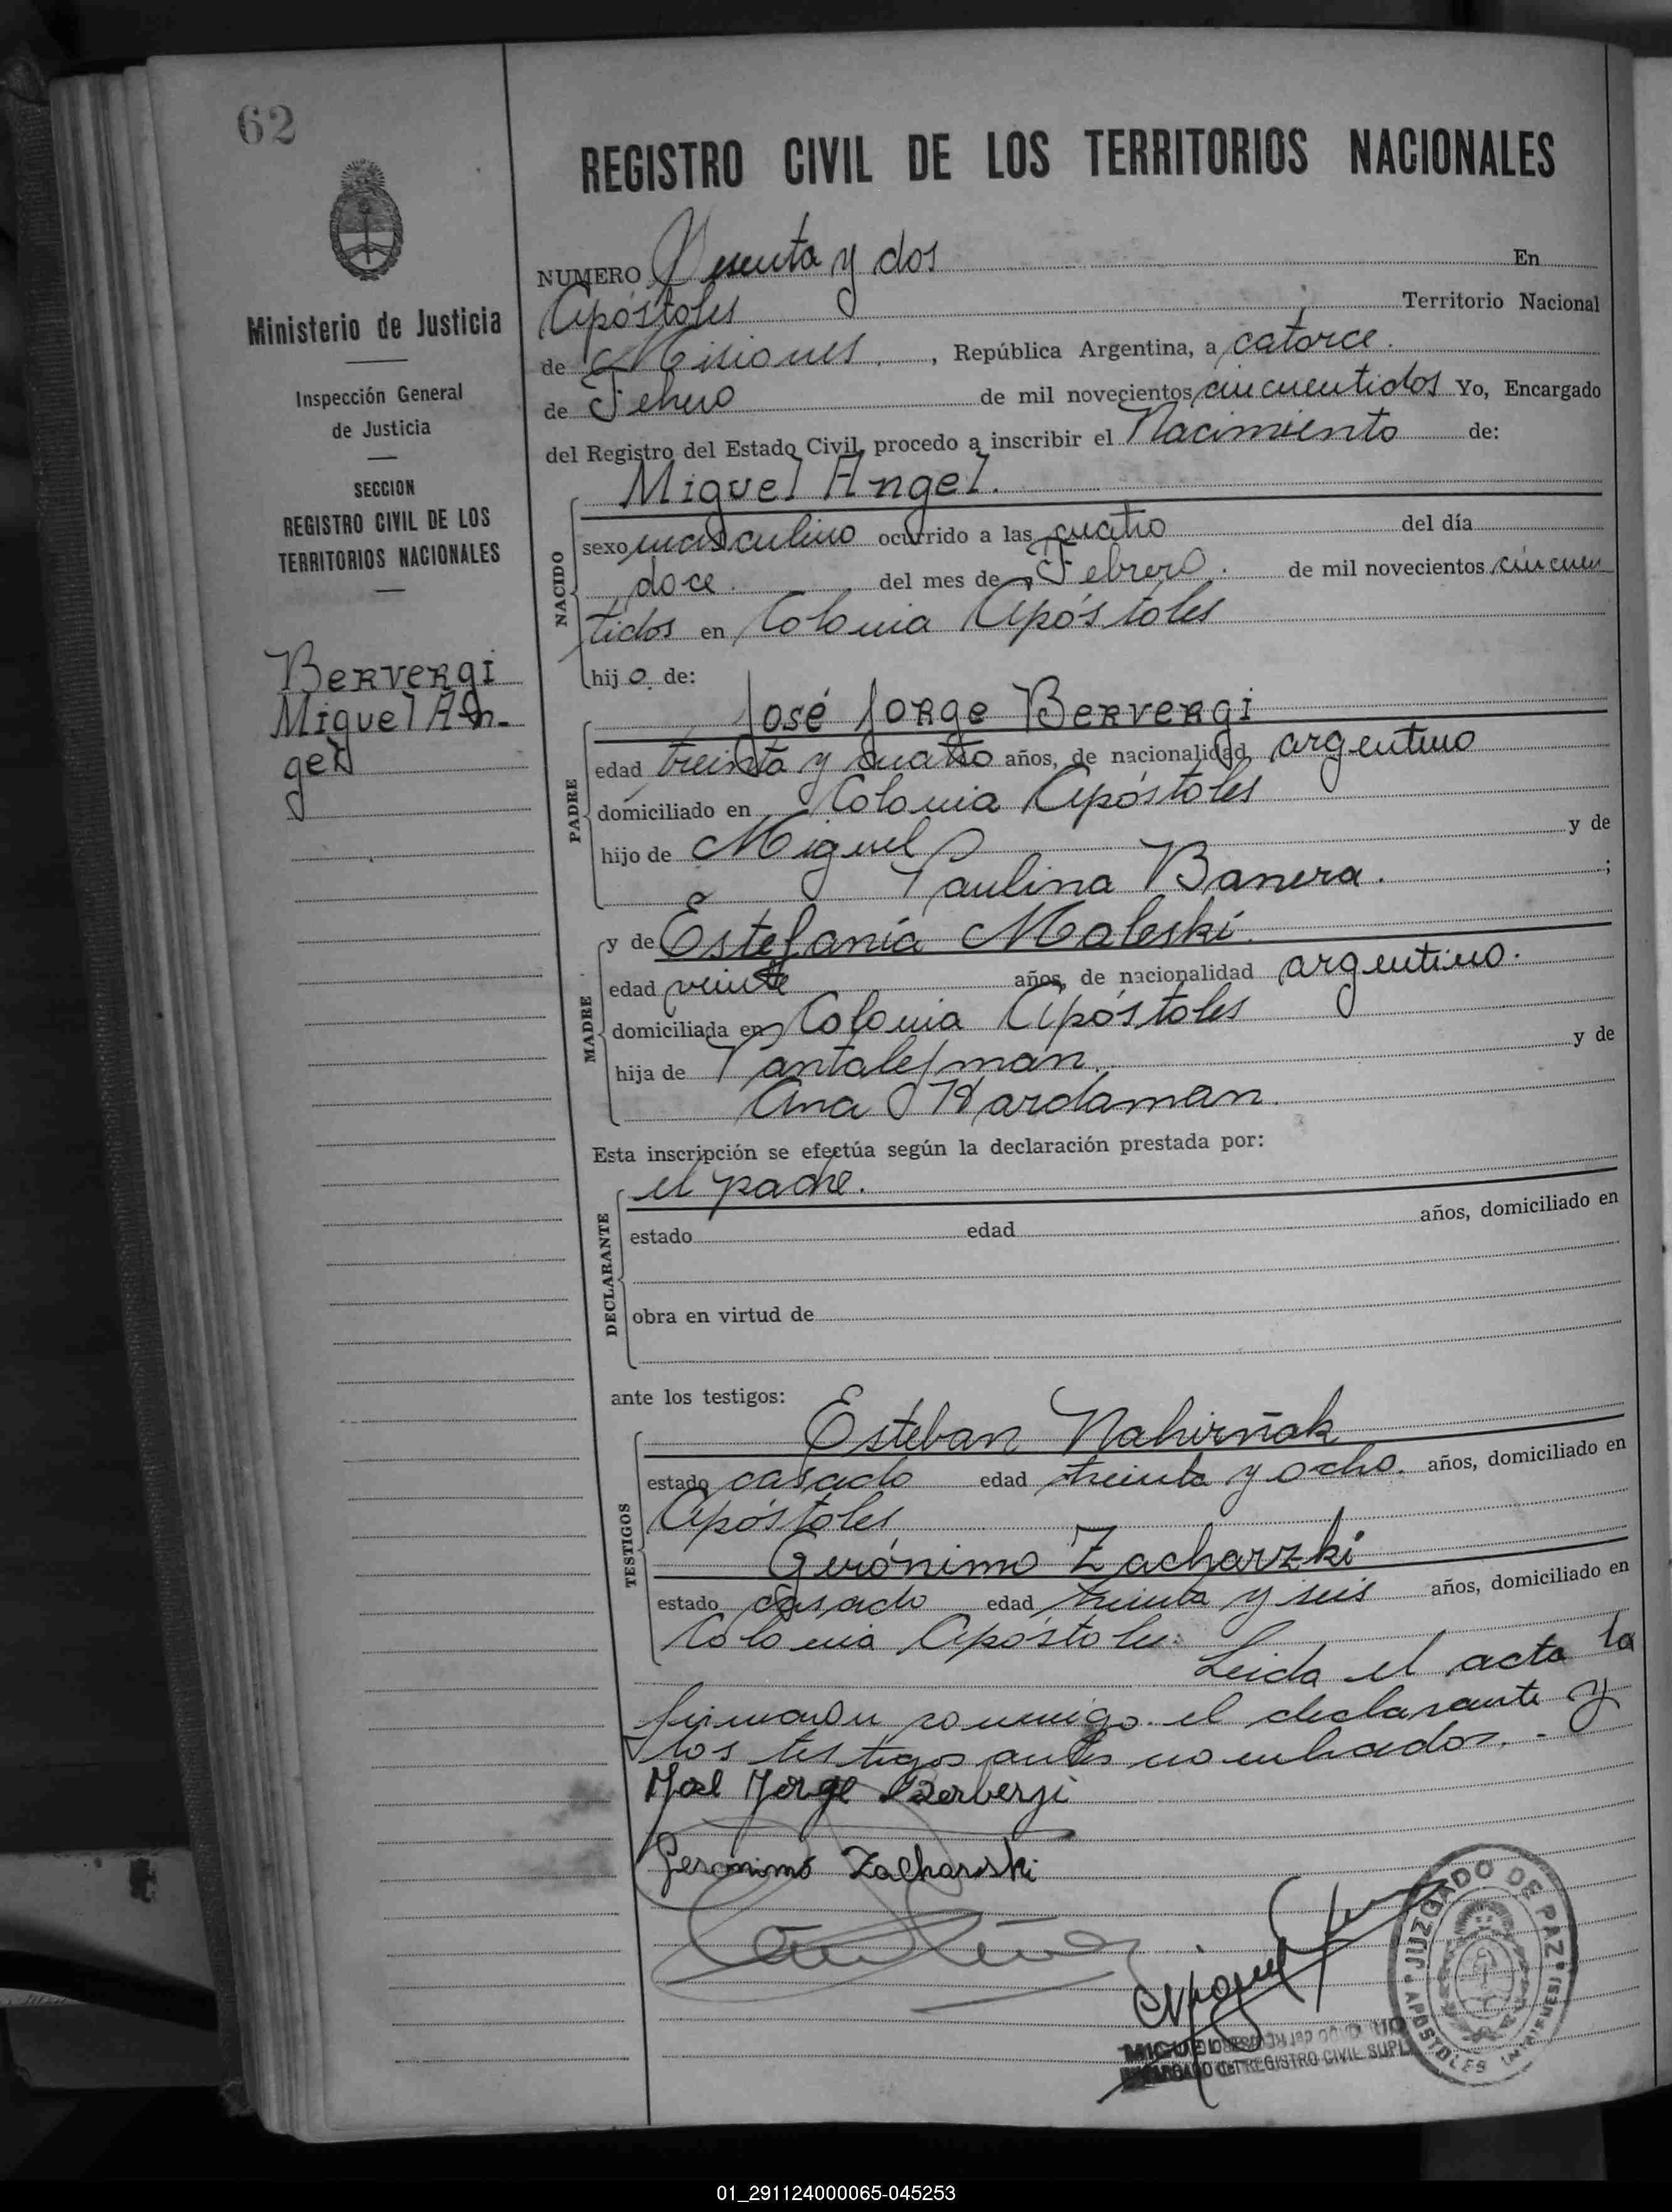 62
REGISTRO CIVIL DE LOS TERRITORIOS NACIONALES
Ministerio de Justicia
Inspección General
de Justicia
SECCION
REGISTRO CIVIL DE LOS
TERRITORIOS NACIONALES
Bervergi
Miguel An-
gel
NUMERO Sesenta y dos En
Apóstoles Territorio Nacional
de Misiones, República Argentina, a catorce.
de Febrero de mil novecientos cincuentidos Yo, Encargado
del Registro del Estado Civil, procedo a inscribir el Nacimiento de:
Miguel Angel.
NACIDO
sexo masculino ocurrido a las cuatro del día
doce. del mes de Febrero. de mil novecientos cincuen
tidos en Colonia Apóstoles
hijo. de:
José Jorge Bervergi
PADRE
edad treinta y cuatro años, de nacionalidad argentino
domiciliado en Colonia Apóstoles
hijo de Miguel y de
Paulina Banera. ;
MADRE
y de Estefania Maleski.
edad veinte años, de nacionalidad argentino.
domiciliada en Colonia Apóstoles
hija de y de
Ana Hardaman.
Esta inscripción se efectúa según la declaración prestada por:
el padre.
DECLARANTE
estado edad años, domiciliado en
obra en virtud de
ante los testigos:
TESTIGOS
Esteban Nahirñak
estado casado edad treinta y ocho. años, domiciliado en
Apóstoles
Gerónimo Zacharzki
estado casado edad treinta y seis años, domiciliado en
Colonia Apóstoles.
Leida el acta la
firmaron conmigo el declarante y
los testigos antes nombrados. -
José Jorge Berbergi
Geronimo Zacharski
Miguel
JUZGADO DE PAZ
APOSTOLES (MISIONES)
REGISTRO CIVIL SUPL
01_291124000065-045253